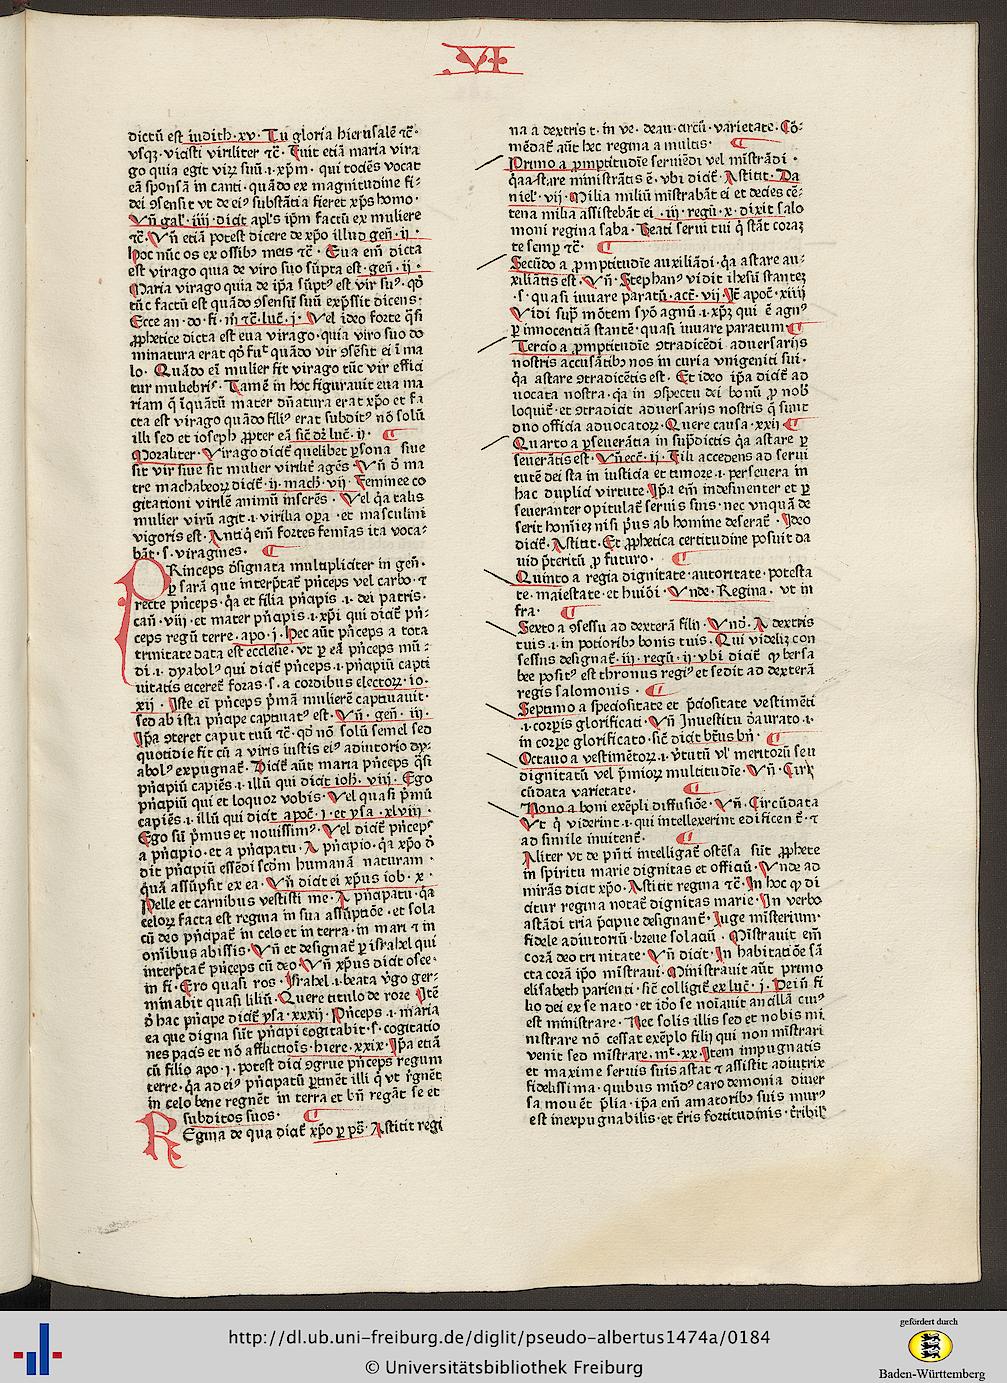 VI
dictū est iudith·xv· Tu gloria hierusalē ⁊c̄·
vsqꝫ· vicisti viriliter ⁊c̄· Fuit etiā maria vira
go quia egit virꝫ suū·i·xp̄m· qui tociēs vocat
eā sponsā in canti· quādo ex magnitudine fi⸗
dei ꝯsensit vt de eiꝰ substātia fieret xp̄s homo·
Vñ gal̓· iiij· dicit apl̓s ip̄m factū ex muliere
⁊c̄· Vñ etiā potest dicere de xp̄o illud geñ· ij·
hoc nūc os ex ossibꝰ meis ⁊c̄· Eua em̄ dicta
est virago quia de viro suo sūpta est· geñ· ij·
Maria virago quia de ip̄a sūptꝰ est vir suꝰ· qð
tūc factū est quādo ꝯsensū suū exp̄ssit dicens·
Ecce an· do· fi· m̄ ⁊c̄· luc̄· j· Vel ideo forte q̄si
ꝓphetice dicta est eua virago· quia viro suo do
minatura erat qð fuᶜ quādo vir ꝯsēsit ei ī ma
lo· Quādo ei mulier fit virago tūc vir effici
tur muliebrꝭ· Tamē in hoc figurauit eua ma
riam q̄ īquātū mater dn̄atura erat xp̄o et fa
cta est virago quādo filiꝰ erat subditꝰ nō solū
illi sed et ioseph ꝓpter eā sic̄ dꝛ luc̄· ij·
Moraliter· Virago dicit̄ quelibet ꝑsona siue
sit vir siue sit mulier virilit̄ agēs· Vñ ð ma
tre machabeoꝝ dicit̄· ij· mach̄· vij· Feminee co
gitationi virilē animū inserēs· Vel q̄a talis
mulier virū agit·i· virilia oꝑa · et masculini
vigoris est· Antiqͥ em̄ fortes femīas ita voca⸗
bāt· s· viragines·
PRinceps ðsignata multipliciter in geñ·
ꝑ sarā que interp̄tat̄ pͥnceps vel carbo· ⁊
recte pͥnceps· q̄a et filia pͥncipis ·i· dei patris·
cañ· viij· et mater pͥncipis·i· xp̄i qui dicit̄ pͥn⸗
ceps regū terre· apo· j· Hec aūt pͥnceps a tota
trinitate data est ecclesie· vt ꝑ eā pͥnceps mū⸗
di·i· dyabolꝰ qui dicit̄ pͥnceps·i· pͥncipiū capti
uitatis eiceret̄ foras·s· a cordibus electorꝫ· io·
xij· Iste ei pͥnceps pͥmā mulierē captiuauit·
sed ab ista pͥncipe captiuatꝰ est· Vñ· geñ· iij·
Ip̄a ꝯteret caput tuū ⁊c̄· qð nō solū semel sed
quotidie fit cū a viris iustis eiꝰ adiutorio dy⸗
abolꝰ expugnat̄· Dicit̄ aūt maria pͥnceps q̄si
pͥncipiū capiēs·i· illū qui dicit ioh̄· viij· Ego
pͥncipiū qui et loquor vobis· Vel quasi pͥmū
capiēs·i· illū qui dicit apoc̄·j· et ysa·xlviij·
Ego sū pͥmus et nouissimꝰ· Vel dicit̄ pͥnceps
a pͥncipio· et a pͥncipatu· A pͥncipio· q̄a xp̄o ð
dit pͥncipiū essēdi scd̄m humanā naturam·
q̄uā assūpsit ex ea· Vñ dicit ei xp̄us iob· x·
Pelle et carnibus vestisti me· A pͥncipatu· q̄a
celorꝫ facta est regina in sua assūptiōe· et sola
cū deo pͥncipat̄ in celo et in terra· in mari ⁊ in
om̄ibus abissis· Vñ et designat̄ ꝑ israhel qui
interp̄tat̄ pͥnceps cū deo· Vñ xp̄us dicit osee·
in fi· Ero quasi ros· Israhel·i· beata vͥgo ger⸗
minabit quasi liliū· Quere titulo de rore Itē
ð hac pͥncipe dicit̄ ysa·xxxij· Pͥnceps·i· maria
ea que digna sūt pͥncipi cogitabit·s· cogitatio
nes pacis et nō afflictiōis· hiere·xxix· Ip̄a etiā
cū filio apo·j· potest dici ꝯgrue pͥnceps regum
terre· q̄a ad eiꝰ pͥncipatū ꝑtinēt illi qͥ vt rͥgnēt
in celo bene regnēt in terra et bn̄ regāt se et
subditos suos·
REgina de qua dicit̄ xp̄o ꝑ ps̄· Astitit regi
na a dextris t· in ve· deau· circū· varietate· Cō⸗
mēdat̄ aūt hec regina a multis·
Primo a ꝓmptitudīe seruiēdi vel mīstrādi·
q̄a astare ministrātis ē· vbi dicit̄· Astitit· Da
niel̓· vij· Milia miliū mīstrabāt ei et decies cē⸗
tena milia assistebāt ei·iij· regū·x· dixit salo
moni regina saba· Beati serui tui qͥ stāt coraꝫ
te semꝑ ⁊c̄·
Secūdo a ꝓmptitudīe auxiliādi· q̄a astare au⸗
xiliātis est· Vñ· Stephanꝰ vidit ih̄esū stanteꝫ
·s· quasi iuuare paratū· act̄· vij· Itē apoc̄· xiiij
Vidi suꝑ mōtem syō agnū·i·xp̄ꝫ qui ē agnꝰ
ꝑ innocentiā stantē· quasi iuuare paratum
Tercio a ꝓmptitudīe ꝯtradicēdi aduersarijs
nostris accusātibꝰ nos in curia vnigeniti sui·
q̄a astare ꝯtradicētis est· Et ideo ip̄a dicit̄ ad
uocata nostra· q̄a in ꝯspectu dei bonū ꝓ nob̄
loquit̄· et ꝯtradicit aduersarijs nostris q̄ sunt
duo officia aduocatorꝫ· Quere causa·xxij
Quarto a ꝑseuerātia in supͣdictis q̄a astare ꝑ
seuerātis est· Vñ ecc̄· ij· Fili accedens ad serui
tutē dei sta in iusticia et timore·i· perseuera in
hac duplici virtute· Ip̄a em̄ indesinenter et ꝑ
seueranter opitulat̄ seruis suis· nec vnquā de
serit homīeꝫ nisi pͥus ab homine deserat̄· Ideo
dicit̄· Astitit· Et ꝓphetica certitudine posuit da
uid p̄teritū ꝓ futuro·
Quinto a regia dignitate· autoritate· potesta
te· maiestate· et huiꝰdi· Vnde· Regina· vt in
fra·
Sexto a ꝯsessu ad dexterā filij· Vnð· A dextris
tuis·i· in potioribꝰ bonis tuis· Qui videliꝫ con
sessus designat̄·iij· regū·ij· vbi dicit̄ ꝙ bersa
bee positꝰ est thronus regiꝰ et sedit ad dexterā
regis salomonis·
Septimo a speciositate et p̄ciositate vestimēti
·i· corꝑis glorificati· Vñ Inuestitu ðaurato·i·
in corꝑe glorificato· sic̄ dicit btūs bn̄·
Octauo a vestimētorꝫ·i· vͥtutū vl̓ meritorū seu
dignitatū vel pͥmiorꝫ multitudīe· Vñ· Cir
cūdata varietate·
Nono a boni exēpli diffusiōe· Vñ· Circūdata
Vt qͥ viderint·i· qui intellexerint edificent̄· ⁊
ad simile inuitent̄·
Aliter vt de pͥnti intelligat̄ ostēsa sūt ꝓphete
in spiritu marie dignitas et officiū· Vnde ad
mirās dicit xp̄o· Astitit regina ⁊c̄· In hoc ꝙ di
citur regina notat̄ dignitas marie· In verbo
astādi tria p̄cipue designant̄· Iuge mīsterium·
fidele adiutoriū· breue solaciū· Mīstrauit em̄
corā deo trinitate· Vñ dicit· In habitatiōe sā
cta corā ip̄o mīstraui· Ministrauit aūt primo
elisabeth parienti· sic̄ colligit̄ ex luc̄· j· Deiñ fi
lio dei ex se nato· et ido se noīauit ancillā ciuꝰ
est ministrare· Nec solis illis sed et nobis mi
nistrare nō cessat exēplo filij qui non mīstrari
venit sed mīstrare· mͭ· xx· Item impugnatis
et maxime seruis suis astat ⁊ assistit adiutrix
fidelissima· quibus mūdꝰ caro demonia diuer
sa mouēt p̄lia· ip̄a em̄ amatoribꝰ suis murꝰ
est inexpugnabilis· et tr̄ris fortitudinis· tr̄ribil̓
http://dl.ub.uni-freiburg.de/diglit/pseudo-albertus1474a/0184
© Universitätsbibliothek Freiburg
gefördert durch
Baden-Württemberg